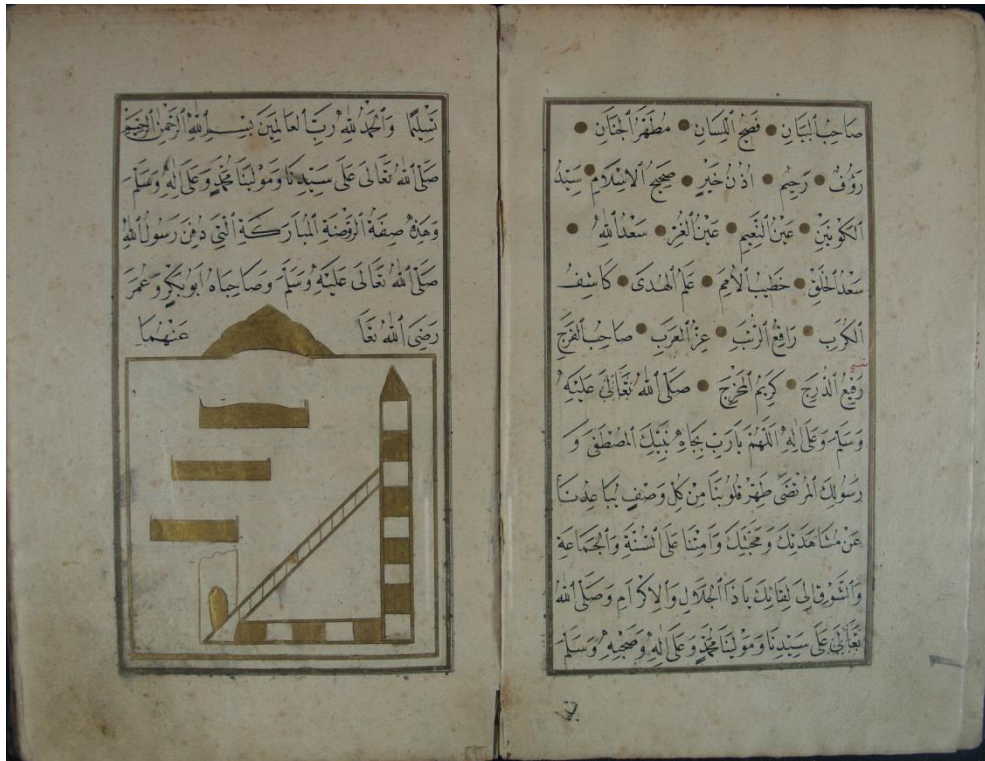 صَاحِبُ الْبَيَانِ ● فَصِيحُ اللِّسَانِ ● مُطَهَّرُ الْجَنَانِ ●
رَؤُفٌ ● رَحِيمٌ ● اُذُنُ خَيْرٍ ● صَحِيحُ الْاِسْلَامِ ● سَيِّدُ
الْكَوْنَيْنِ ● عَيْنُ النَّعِيمِ ● عَيْنُ الْغُرِّ ● سَعْدُ اللهِ ●
سَعْدُ الْخَلْقِ ● خَطِيبُ الْاُمَمِ ● عَلَمُ الْهُدَى ● كَاشِفُ
الْكُرَبِ ● رَافِعُ الرُّتَبِ ● عِزُّ الْعَرَبِ ● صَاحِبُ الْفَرَجِ
رَفِيعُ الدَّرَجِ ● كَرِيمُ الْمَخْرَجِ ● صَلَّى اللهُ تَعَالَى عَلَيْهِ
وَسَلَّمَ وَعَلَى اٰلِهِ اَللّٰهُمَّ يَا رَبِّ بِجَاهِ نَبِيِّكَ الْمُصْطَفَى وَ
رَسُولِكَ الْمُرْتَضَى طَهِّرْ قُلُوبَنَا مِنْ كُلِّ وَصْفٍ يُبَاعِدُنَا
عَنْ مُشَاهَدَتِكَ وَمَحَبَّتِكَ وَاَمِتْنَا عَلَى السُّنَّةِ وَالْجَمَاعَةِ
وَالشَّوْقِ اِلَى لِقَائِكَ يَا ذَا الْجَلَالِ وَالْاِكْرَامِ وَصَلَّى اللهُ
تَعَالَى عَلَى سَيِّدِنَا وَمَوْلَينَا مُحَمَّدٍ وَعَلَى اٰلِهِ وَصَحْبِهِ وَسَلَّمَ
تَسْلِيمًا وَالْحَمْدُ لِلّٰهِ رَبِّ الْعَالَمِينَ بِسْمِ اللهِ الرَّحْمٰنِ الرَّحِيمِ
صَلَّى اللهُ تَعَالَى عَلَى سَيِّدِنَا وَمَوْلَينَا مُحَمَّدٍ وَعَلَى اٰلِهِ وَسَلَّمَ
وَهٰذِهِ صِفَةُ الرَّوْضَةِ الْمُبَارَكَةِ الَّتِي دُفِنَ رَسُولُ اللهِ
صَلَّى اللهُ تَعَالَى عَلَيْهِ وَسَلَّمَ وَصَاحِبَاهُ اَبُو بَكْرٍ وَعُمَرَ
رَضِيَ اللهُ تَعَا عَنْهُمَا